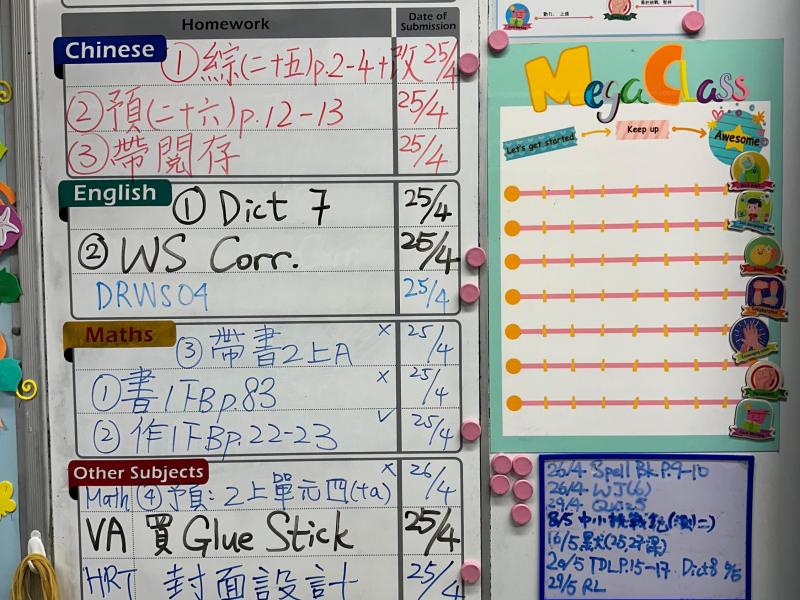 Homework
Date of Submission
Chinese
① 綜(二十五)p.2-4+改 25/4
② 預(二十六)p.12-13 25/4
③ 帶閱存 25/4
English
① Dict 7 25/4
② WS Corr. 25/4
DRWS04 25/4
Maths
③ 帶書2上A × 25/4
① 書1下B p.83 × 25/4
② 作1下B p.22-23 ✓ 25/4
Other Subjects
Math ④ 預:2上單元四(+a) × 26/4
VA 買 Glue Stick 25/4
HRT 封面設計 25/4
Mega Class
Let's get started
Keep up
Awesome
26/4 Spell Bk. P.9-10
26/4 WJ(6)
29/4 Quiz5
8/5
16/5
20/5 TDLP.15-17 Dict8 9/5
29/5 RL